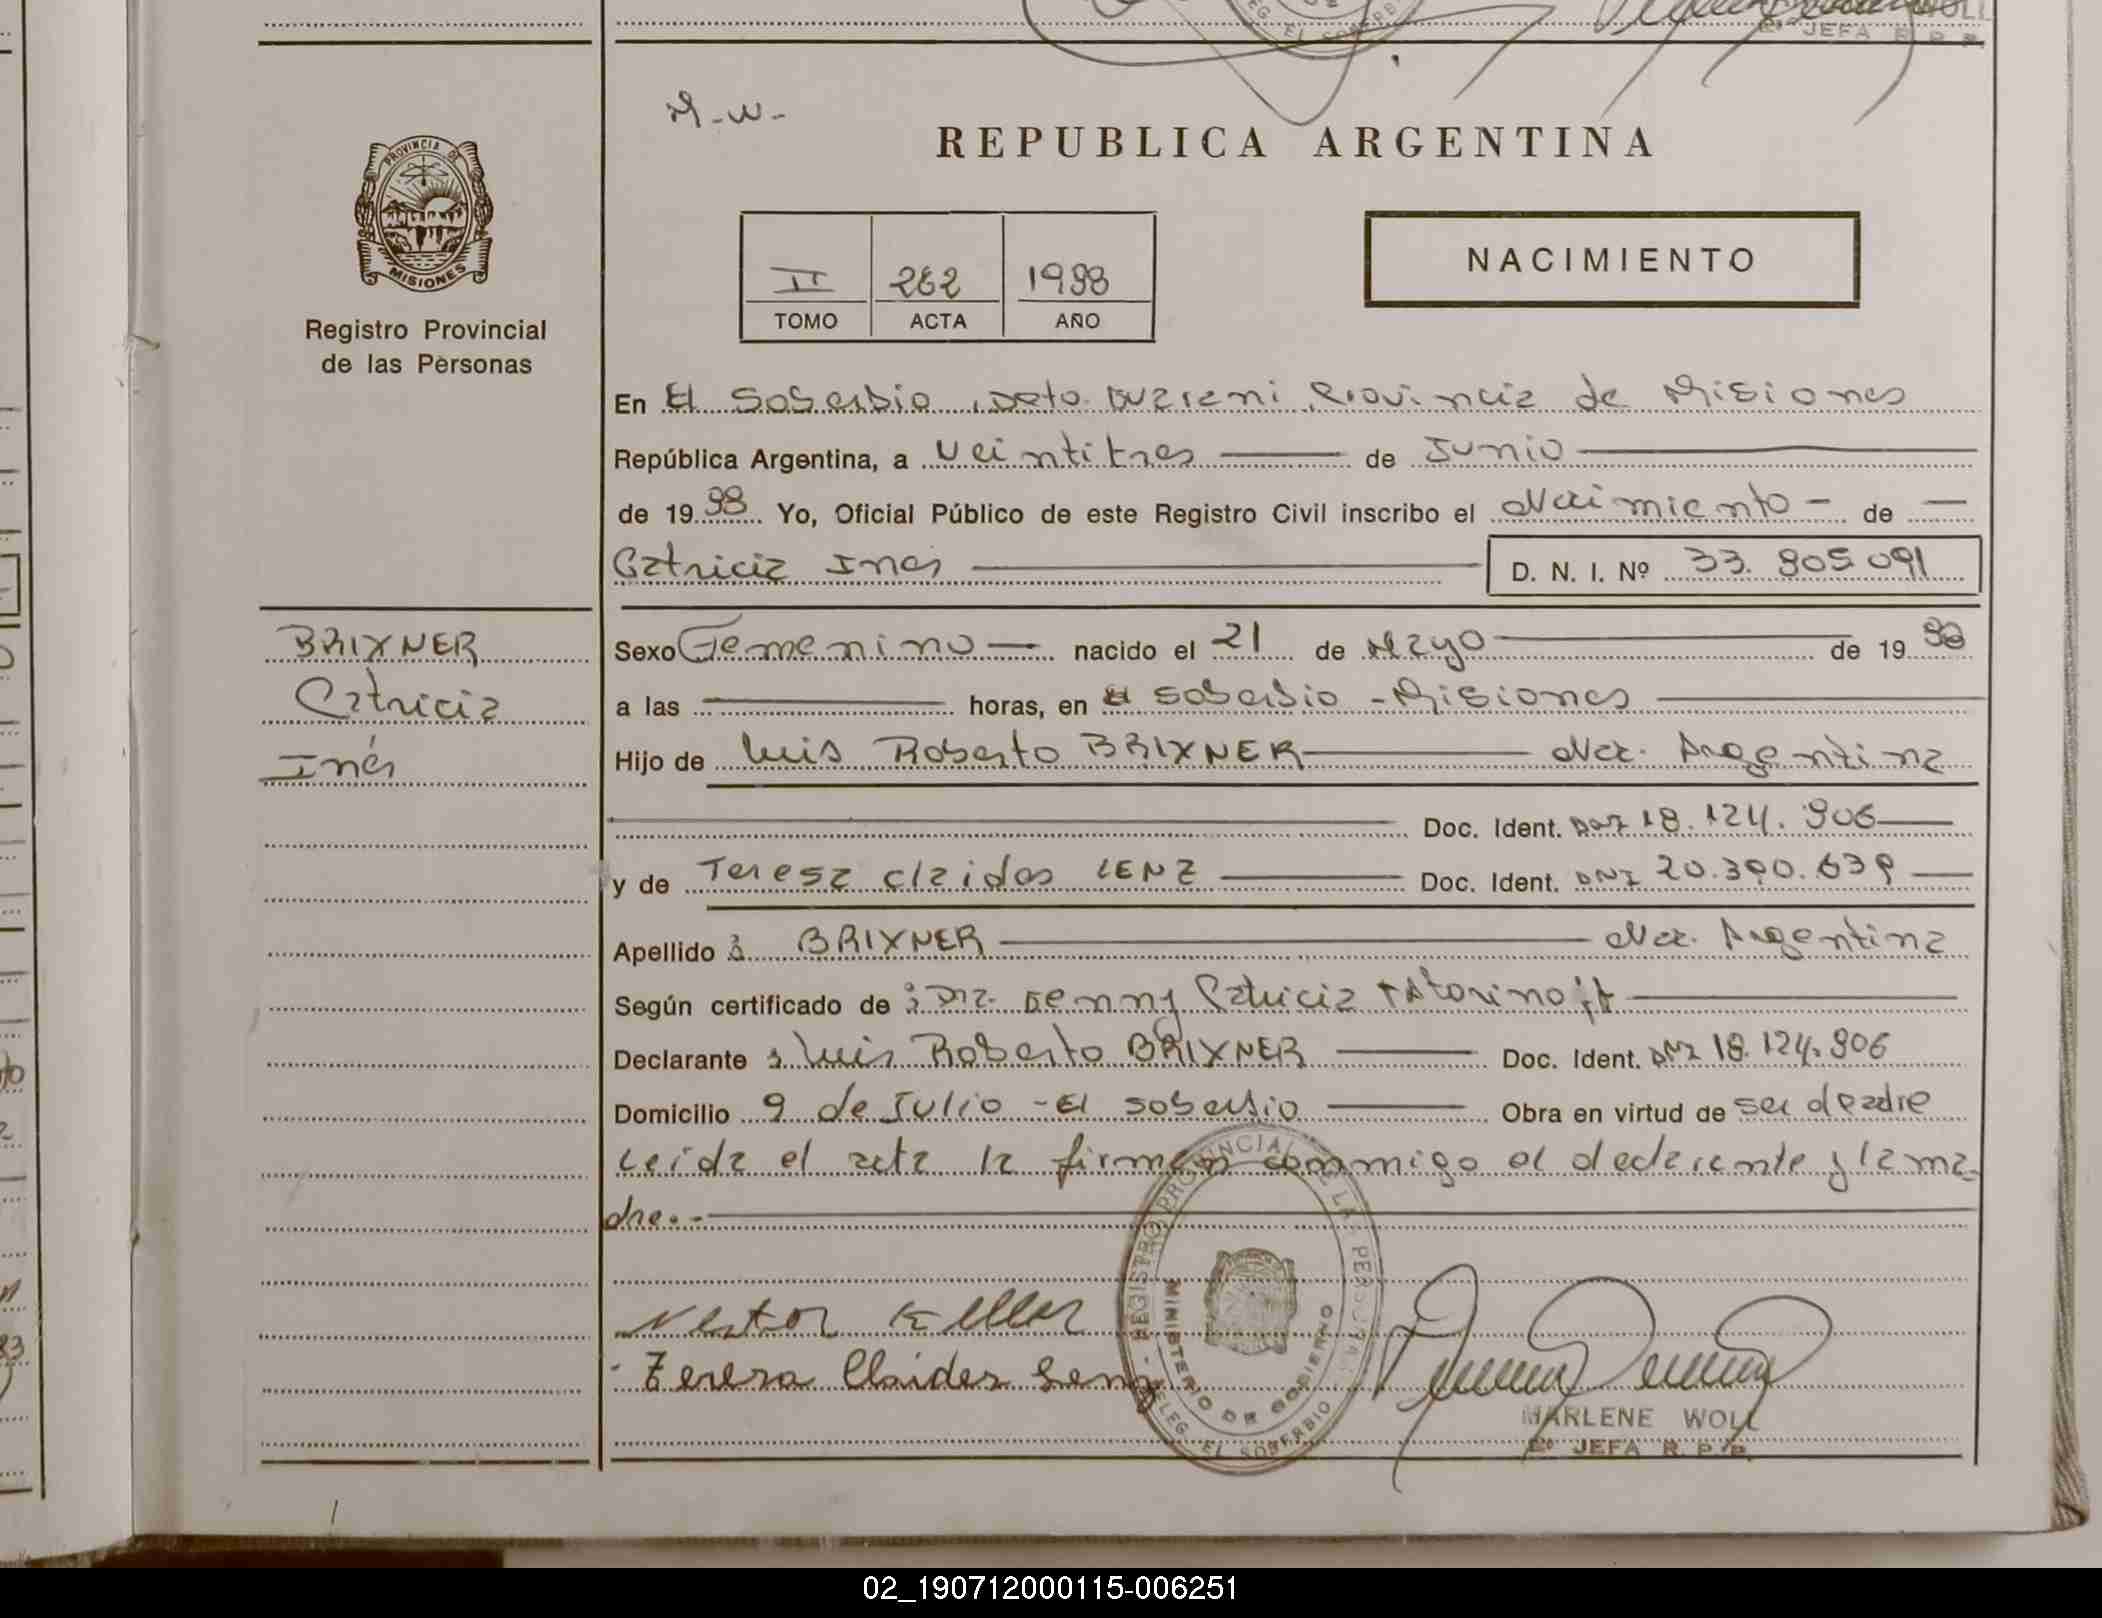 M-W-
REPUBLICA ARGENTINA
PROVINCIA DE
MISIONES
Registro Provincial
de las Personas
II 262 1988
TOMO ACTA AÑO
NACIMIENTO
En El Soberbio, Dpto. Guarani Provincia de Misiones
República Argentina, a Veintitres de Junio
de 19 88 Yo, Oficial Público de este Registro Civil inscribo el Nacimiento - de -
Patricia Ines D. N. I. Nº 33.905.091
BRIXNER
Patricia
Inés
Sexo Femenino nacido el 21 de Mayo de 19 88
a las horas, en El Soberbio - Misiones
Hijo de Luis Roberto BRIXNER Nac. Argentina
Doc. Ident. DNI 18.124.906
y de Teresa Claides LENZ Doc. Ident. DNI 20.390.639
Apellido BRIXNER Nac. Argentina
Según certificado de Dra. Jenny Patricia
Declarante Luis Roberto BRIXNER Doc. Ident. DNI 18.124.906
Domicilio 9 de Julio - El Soberbio Obra en virtud de ser padre
Leida el acta la firman conmigo el declarante y la ma-
dre.-
Nestor Keller
Tereza Claides Lenz
REGISTRO PROVINCIAL DE LAS PERSONAS
MINISTERIO DE GOBIERNO
DELEG. EL SOBERBIO
MARLENE WOLL
JEFA R. P. P.
02_190712000115-006251